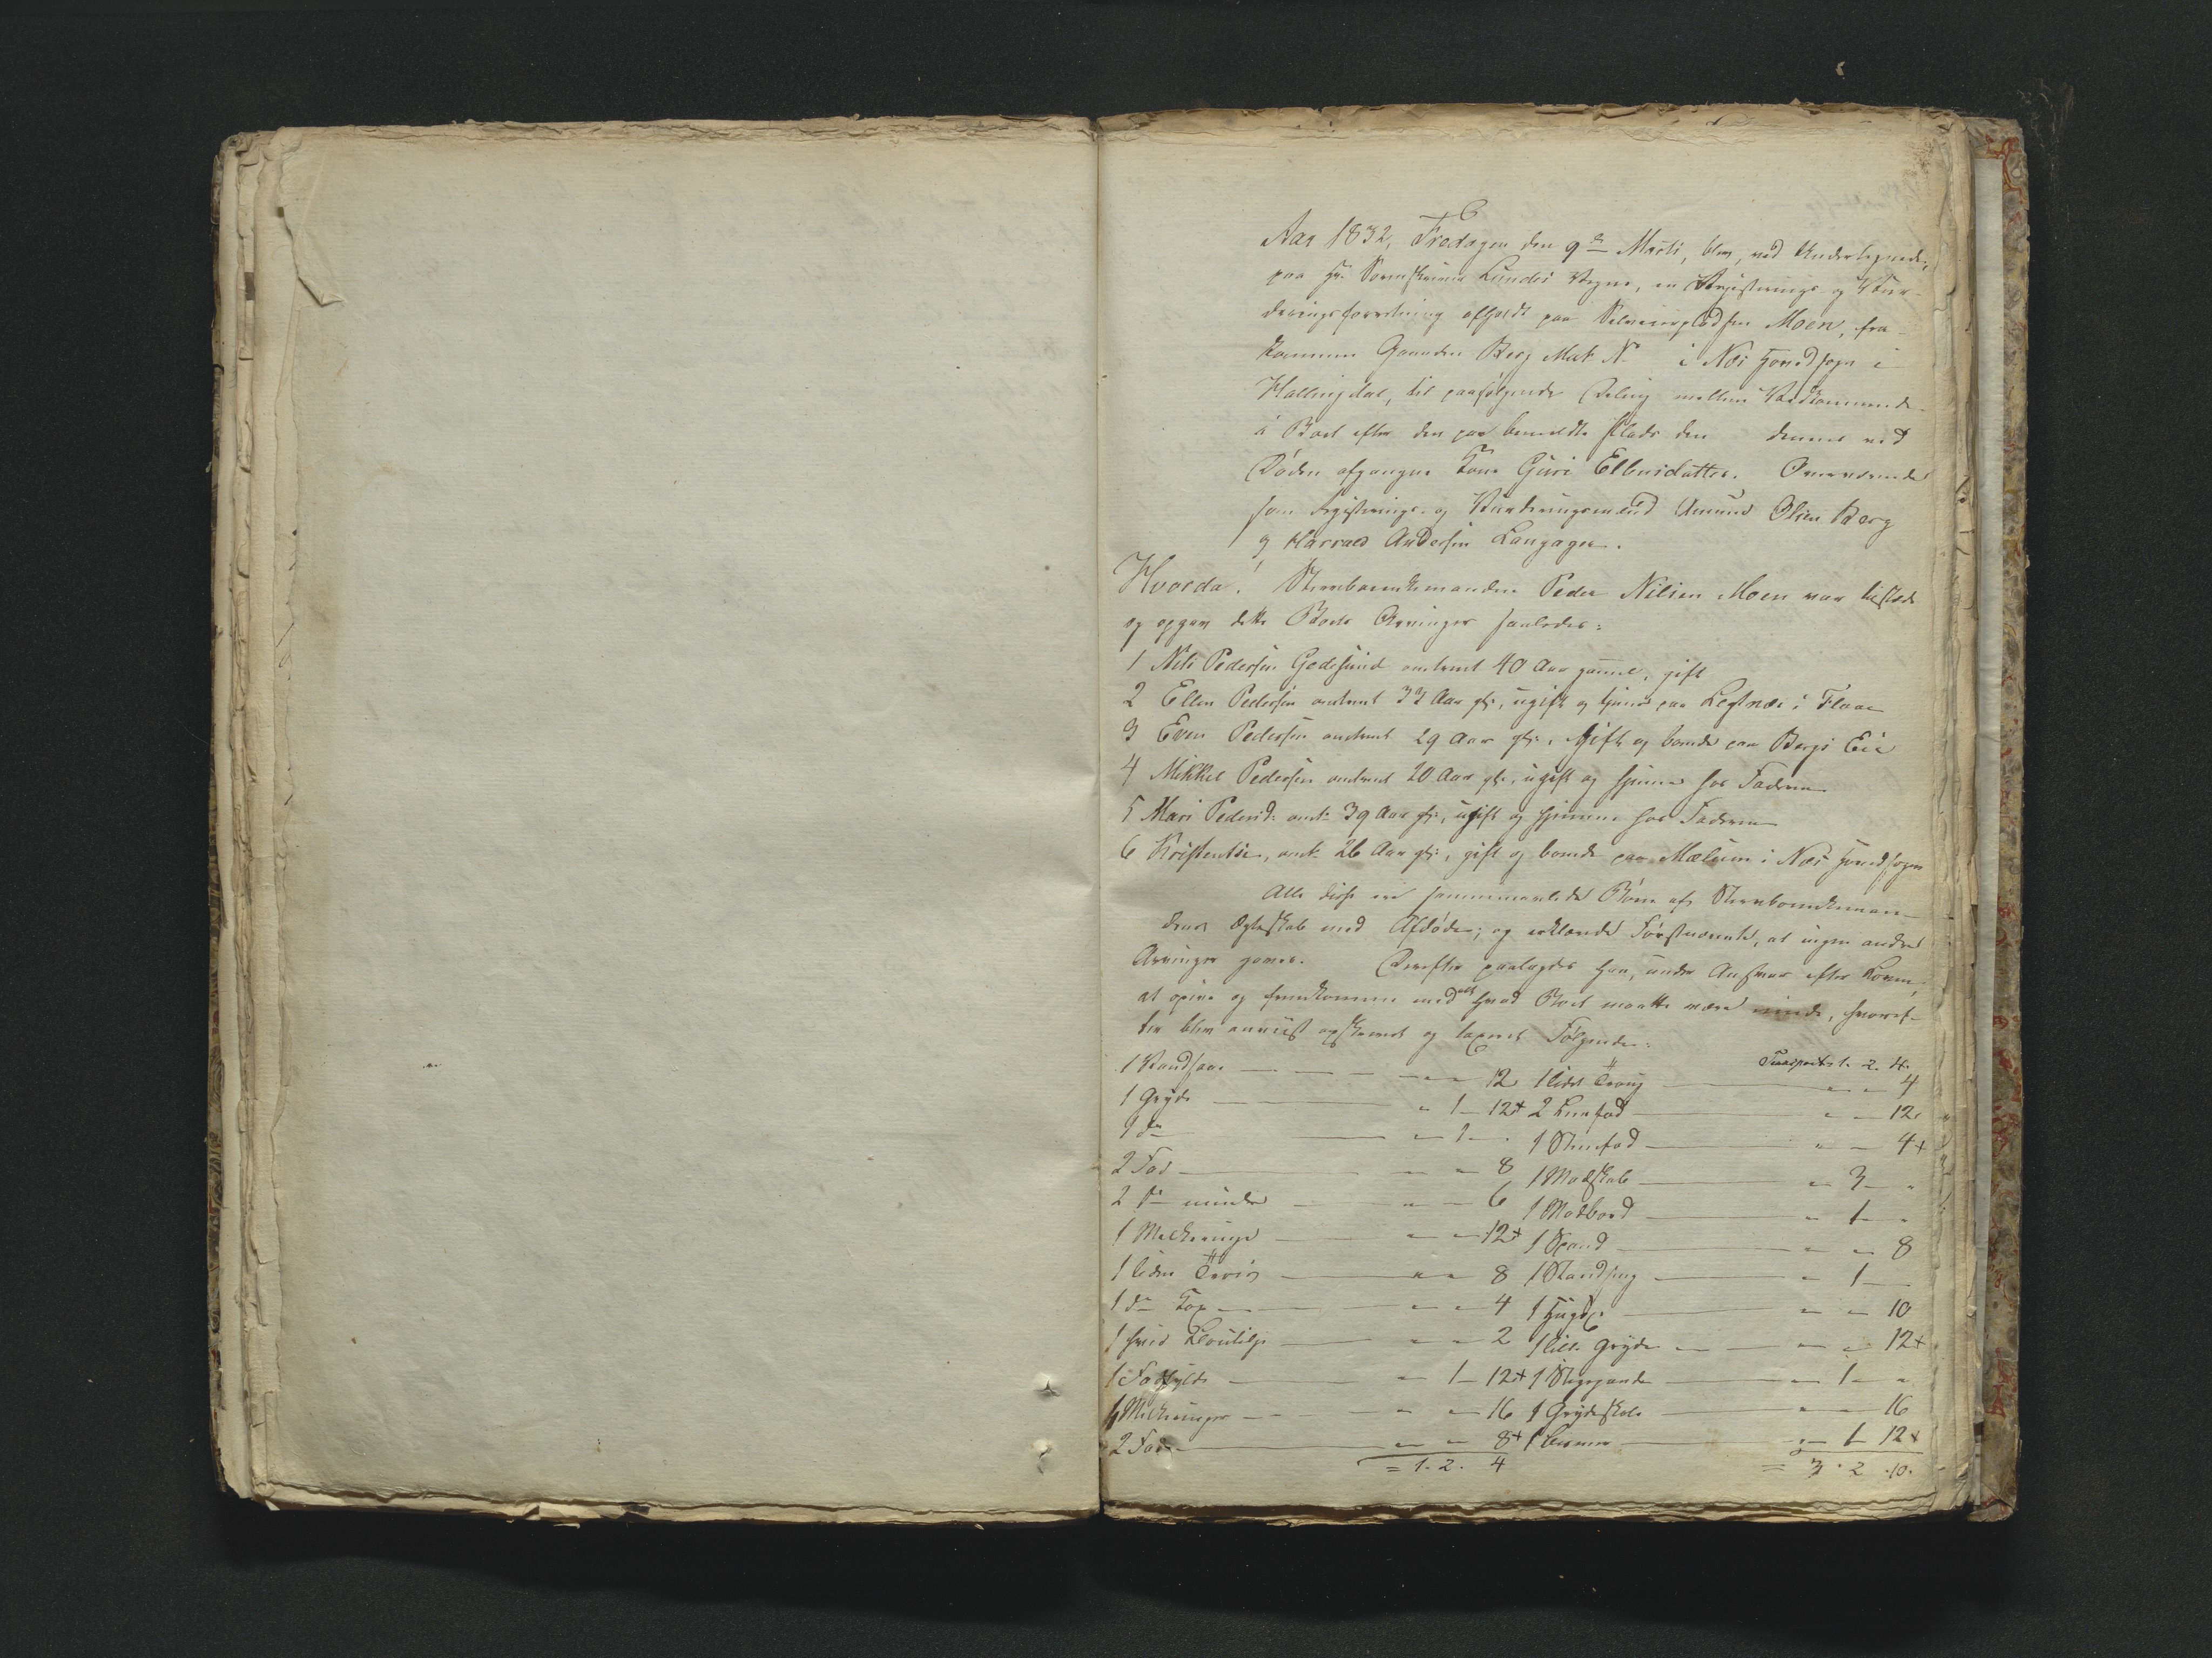 6
Aar 1832, Fredagen den 9de Marti, blev, ved Undertegnede,
paa Hr. Sorenskriver Lunds Vegne, en Registrerings og Vur-
deringsforretning afholdt paa Pladsen Moen, fra-
kommen Gaarden Berg Mat. N i Næs Hovedsogn i
Hallingdal, til paafølgende Deling mellem Vedkommende
i Boet efter den paa bemeldte Plads den denned ved
Døden afgangne Kone Guri Ellensdatter. Overværende
som Registrerings- og Vurderingsmænd Amund Olsen Berg
og Harrald Andersen Langager.
Hvorda! Sterboenkemanden Peder Nilsen Moen var tilstæde
og opgav dette Boets Arvinger saaledes:
1 Nils Pedersen Godesund omtrent 40 Aar gammel, gift
2 Ellen Pedersen omtrent 33 Aar gl:, ugift og tjener paa i Flaae
3 Even Pedersen omtrent 29 Aar gl:, gift og boende paa Bergs Eie
4 Mikkel Pedersen omtrent 20 Aar gl:, ugift og hjemme hos Faderen
5 Mari Pedersd: omt: 39 Aar gl:, ugift og hjemme hos Faderen
6 Kristentse, omt: 26 Aar gl:, gift og boende paa Mælum i Næs Hovedsogn
Alle disse ere sammenavlede Børn af Sterboenkeman-
dens Ægteskab med Afdøde; og erklærede Førstnævnte, at ingen andre
Arvinger gaves. Derefter paalagdes han, under Ansvar efter Loven,
at opgive og fremkomme med alt hvad Boet maatte være eiende, hvoref-
ter blev anviist opskrevet og taxeret Følgende:
Transport 1. 2. 4.
1 Vandsaae 12 1 lidet Traug 4
1 Gryde 1 12+ 2 Leerfad 12
1 do 1 1 Steenfad 4+
2 Fad 8 1 Madskab 3
2 do mindre 6 1 Madbord 1
1 Melkeringe 12+ 1 Spand 8
1 liden 8 1 Standseng 1
1 do Kop 4 1 10
1 hvid 2 1 lille Gryde 12+
1 1 12+ 1 Stegepande 1
4 Melkeringer 16 1 Grydeskab 16
2 Fade 8+ 1 1 12+
= 1. 2. 4 = 3. 2. 10.